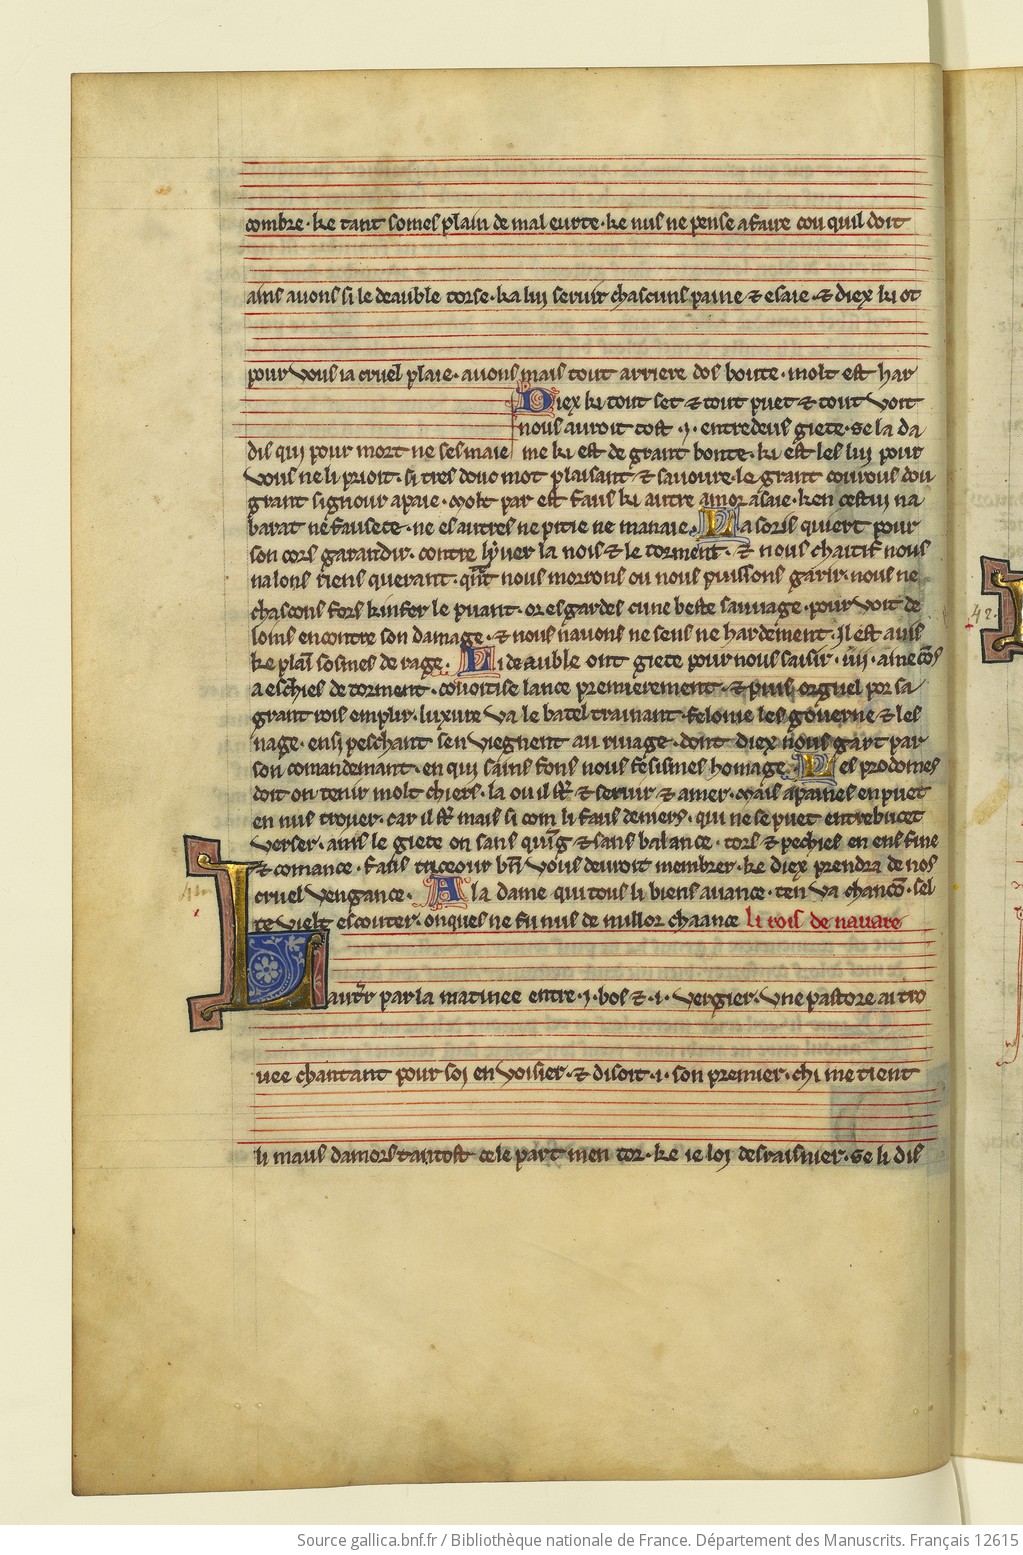 combre · ke tant somes plain de mal eurte · ke nus ne pense a faire cou quil doit
ains auons si le deauble torse · ka lui seruir chascuns paine ⁊ esaie · ⁊ diex ki ot
pour vous ia cruel plaie · auons mais tout arriere dos boute · molt est har
Diex ki tout set ⁊ tout puet ⁊ tout voit
nous auroit tost .j. entredeus giete · se la da
dis qui pour mort ne sesmaie
me ki est de grant bonte · ki est les lui pour
vous ne li prioit · si tres douc mot plaisant ⁊ sauoure · le grant courous dou
grant signour apaie · molt par est faus ki autre amor asaie · ken cestui na
barat ne fausete · ne es autres ne pitie ne manaie. La soris quiert pour
son cors garandir · contre lyuer la nois ⁊ le torment · ⁊ nous chaitif nous
nalons riens querant · qñt nous morrons ou nous puissons garir · nous ne
chascons fors kinfer le puant · or esgardes cune beste sauuage · pour voit de
loins encontre son damage · ⁊ nous nauons ne sens ne hardement · Il est auis
ke plaī somes de rage. Li deauble ont giete pour nous saisir · iiij · ainecōs
aeschies de torment · couoitise lance premierement · ⁊ puis orguel por sa
grant rois emplir · luxure va le batel trainant · felonie les gouerne ⁊ les
nage · ensi peschant sen viegnent au riuage · dont diex nous gart par
son comandemant · en qui sains fons nous fesismes homage. Les prodomes
doit on tenir molt chiers · la ou il st̄ ⁊ seruir ⁊ amer · mais apaines en puet
en nus trouer · car il st̄ mais si com li faus deniers · qui ne se puet en trebucet
verser · ains le giete on sans quīg ⁊ sans balance · tors ⁊ pechies en ens fine
⁊ comance · faus triceour bn̄ vous deuroit membrer · ke diex prendra de uos
cruel vengance. A la dame qui tous li biens auance · ten va chancō · sel
te vielt escouter · onques ne fu nus de millor chaance li rois de nauare
Lautr̄r par la matinee entre .j. bos ⁊ .i. vergier · vne pastore ai tro
uee chantant pour soi en voisier · ⁊ disoit .i. son premier · chi me tient
li maus damors tantost cele part men tor · ke ie loi desraisnier · se li dis
42.
Source gallica.bnf.fr / Bibliothèque nationale de France. Département des Manuscrits. Français 12615